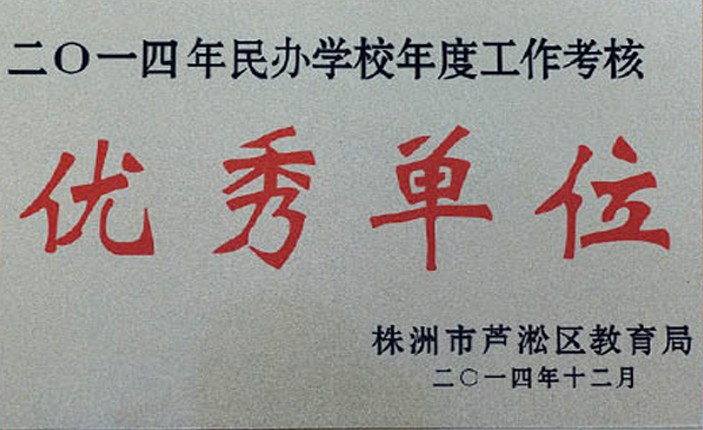 二〇一四年民办学校年度工作考核
优秀单位
株洲市芦淞区教育局
二〇一四年十二月